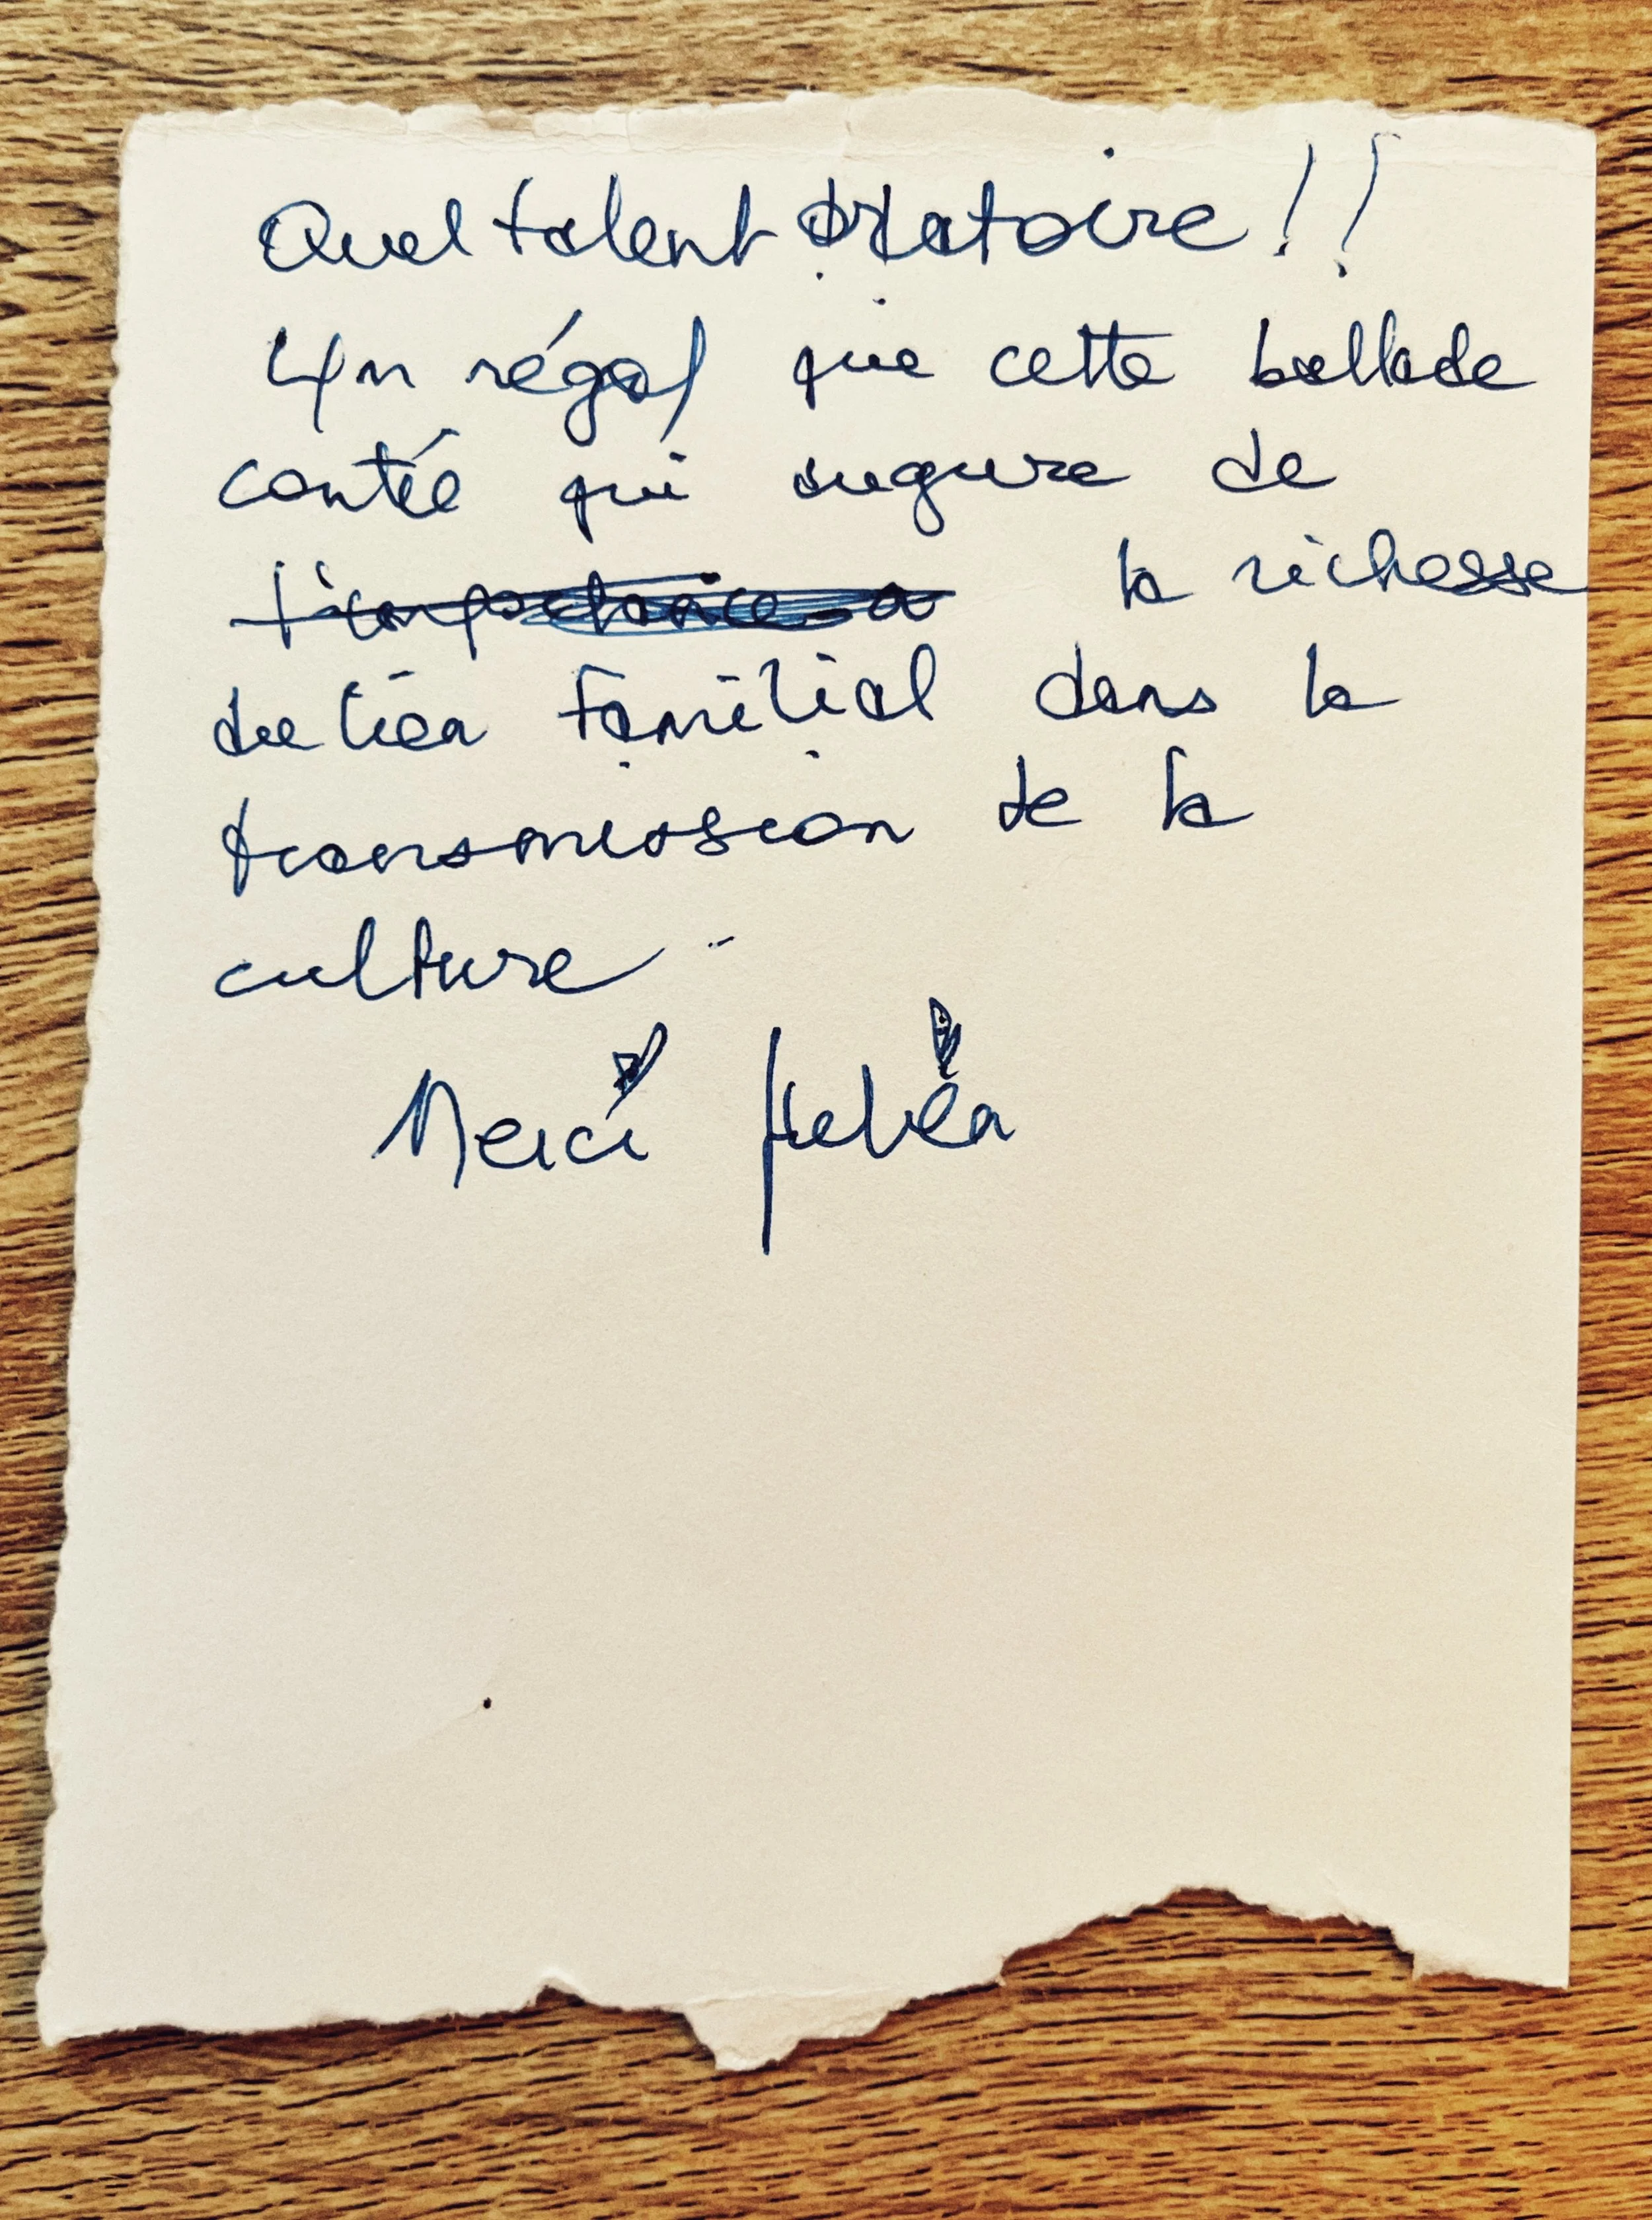 Quel talent oratoire !!
Un régal que cette ballade
conté qui augure de
la richesse
du lien familial dans la
transmission de la
culture ..
Merci